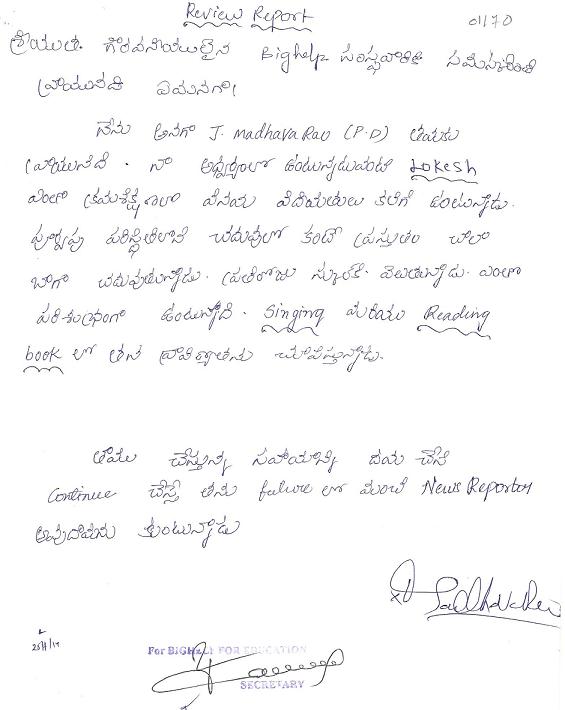 Review Report
01170
శ్రీయుత గౌరవనీయులైన Bighelp సంస్థవారికి సమస్కరించి
వ్రాయునది ఏమనగా!
నేను అనగా J. Madhava Rao (P.D) తమకు
వ్రాయునది. నా ఆధ్వర్యంలో ఉంటున్నటువంటి Lokesh
ఎంతో క్రమశిక్షణతో వినయ విధేయతలు కలిగి ఉంటున్నాడు.
పూర్వపు పరిస్థితిలోని చదువులో కంటే ప్రస్తుతం చాలా
బాగా చదువుతున్నాడు. ప్రతిరోజు స్కూల్‌కి వెలుతున్నాడు. ఎంతో
పరిశుభ్రంగా ఉంటున్నాడు. Singing మరియు Reading
book లో తన ప్రావిణ్యతను చూపిస్తున్నాడు.
తాము చేస్తున్న సహాయాన్ని దయ చేసి
Continue చేస్తే తను failure లో మంచి News Reporter
అవుదామను కుంటున్నాడు
For BIGHELP FOR EDUCATION
SECRETARY